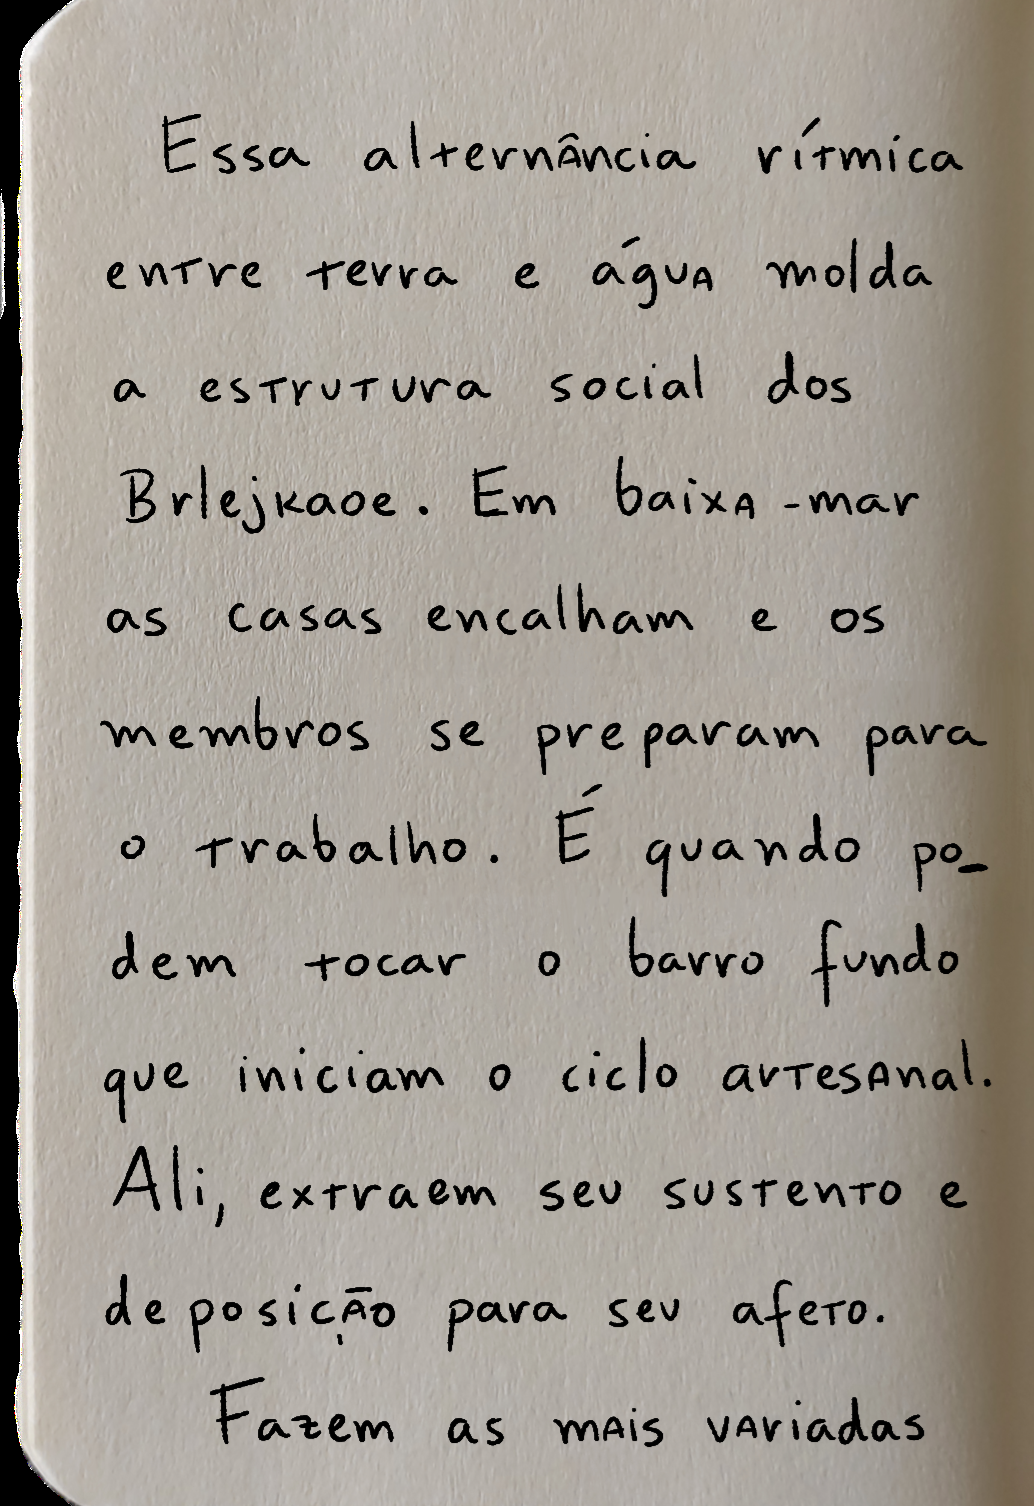 Essa alternância rítmica
entre terra e água molda
a estrutura social dos
Brlejkaoe. Em baixa-mar
as casas encalham e os
membros se preparam para
o trabalho. É quando po-
dem tocar o barro fundo
que iniciam o ciclo artesanal.
Ali, extraem seu sustento e
deposição para seu afeto.
Fazem as mais variadas